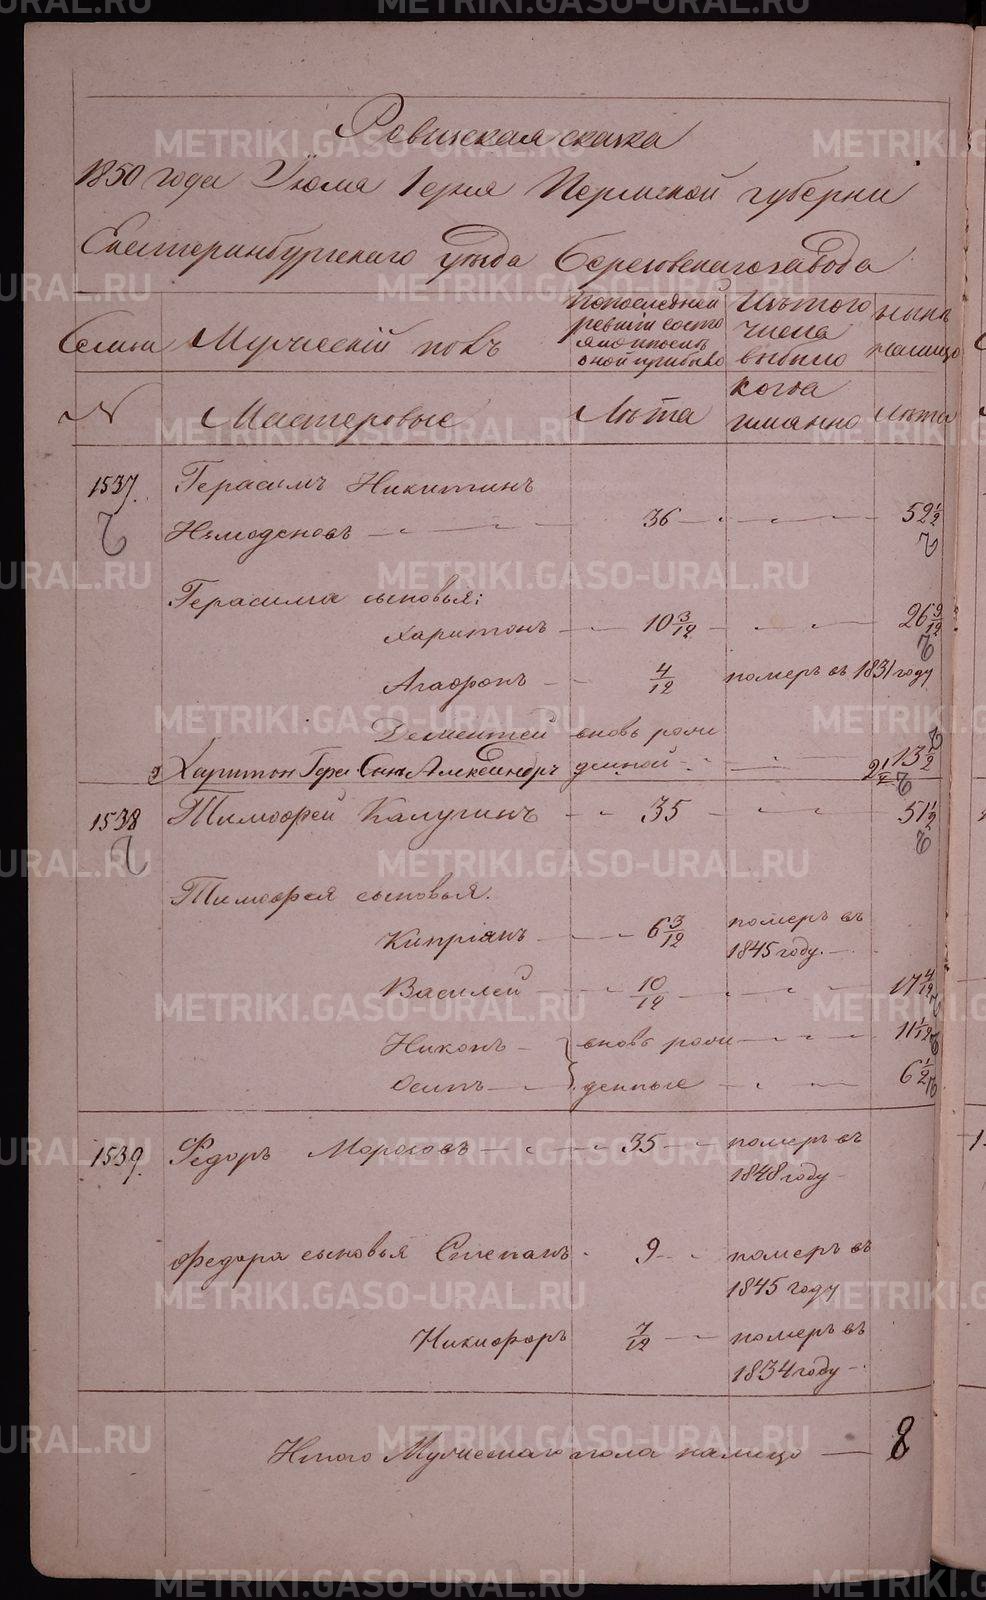 Ревизская сказка
1850 года Июня 1 дня Пермской губернии
Екатеринбургскаго уѣзда Березовскаго завода
Семьи Мужескій полъ
По последней ревизіи состояло и после оной прибыло
Изъ того числа выбыло
нынѣ на лицо
№ Мастеровые Лѣта когда именно Лѣта
1537. Герасимъ Никитинъ
36 52 1/2
Герасима сыновья:
Харитонъ 10 3/12 26 9/12
Агафонъ 4/12 померъ въ 1831 году
Дементей вновь рож
денной 13 1/2
Харитон Гера Сынъ Александръ 2 1/2
1538 Тимофей Калугинъ 35 51 1/2
Тимофея сыновья.
Кипріянъ 6 3/12 померъ въ
1845 году.
Василей 10/12 17 4/12
Никонъ вновь рож 11 1/12
Осипъ денные 6 1/2
1539. Федоръ Морозовъ 35 померъ въ
1848 году
Федора сыновья Степанъ 9 померъ въ
1845 году
Никифоръ 7/12 померъ въ
1834 году
Итого Мужескаго пола на лицо 8
METRIKI.GASO-URAL.RU